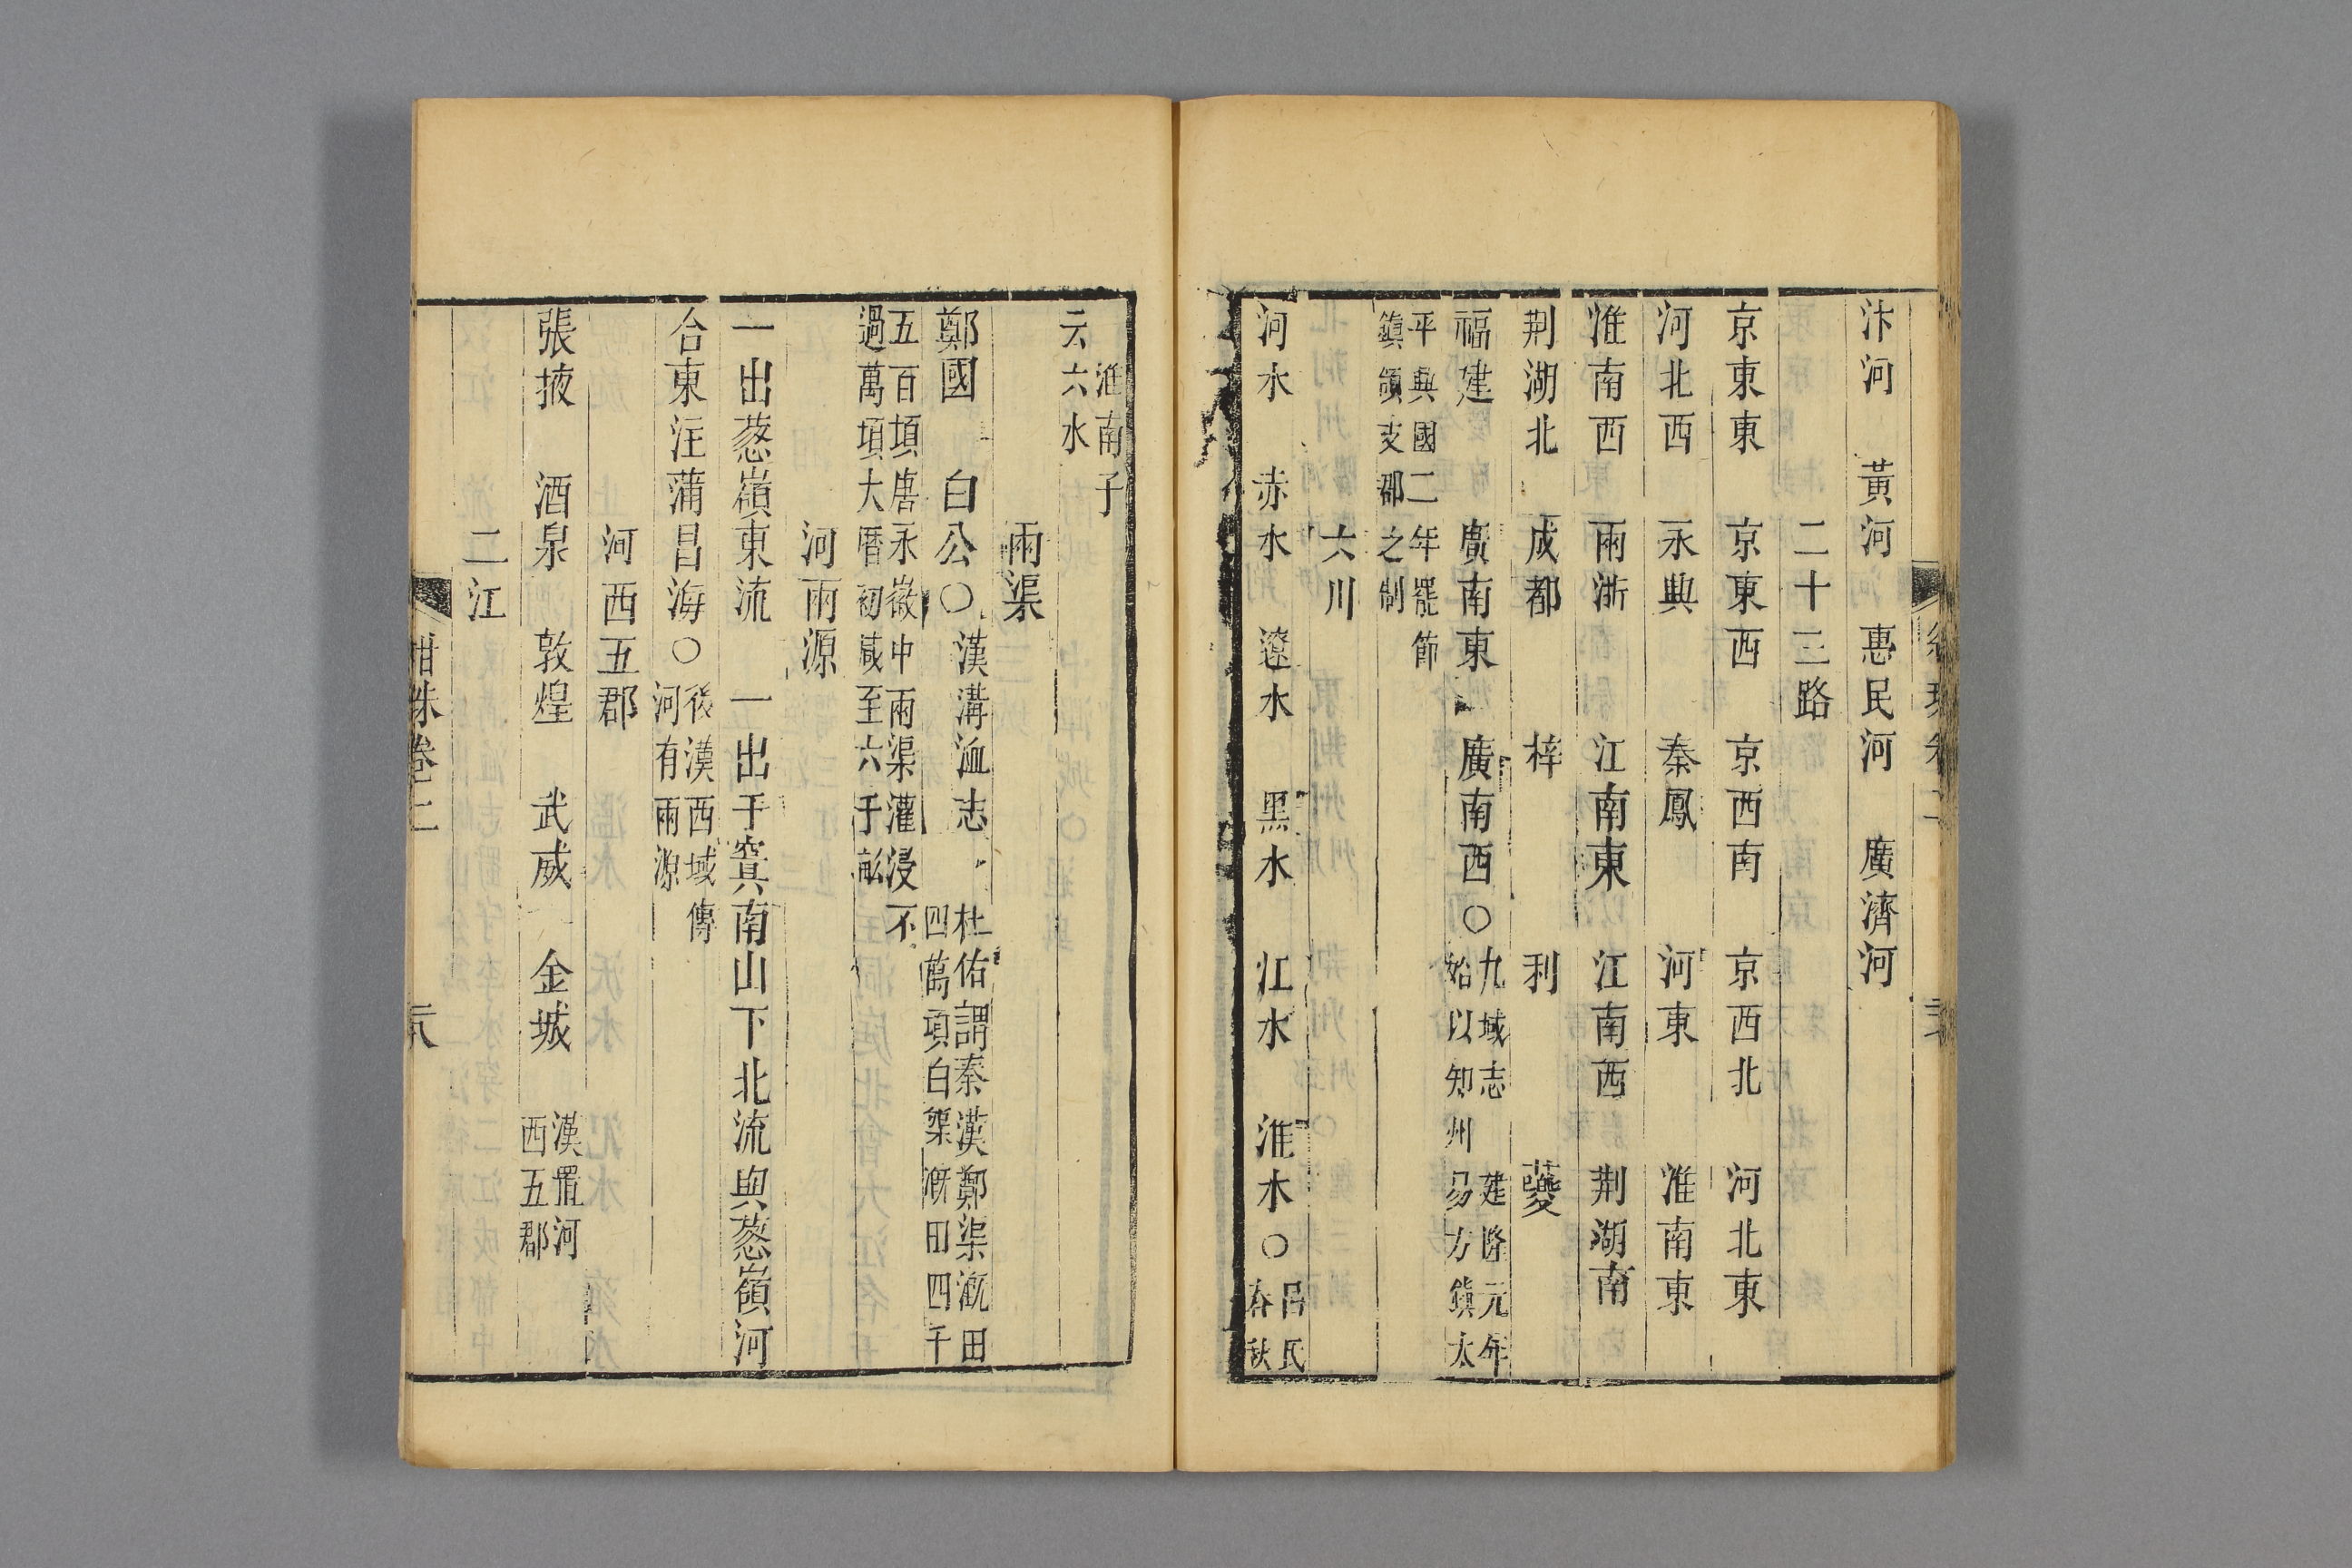 汴河　黃河　惠民河　廣濟河
二十三路
京東東　京東西　京西南　京西北　河北東
河北西　永興　秦鳳　河東　淮南東
淮南西　兩浙　江南東　江南西　荆湖南
荆湖北　成都　梓　利　夔
福建　廣南東　廣南西○九域志　建隆元年
始以知州易方鎮太
平興國二年罷節
鎮領支郡之制
六川
河水　赤水　遼水　黑水　江水　淮水○呂氏
春秋
淮南子
云六水
兩渠
鄭國　白公○漢溝洫志　杜佑謂秦漢鄭渠漑田
四萬頃白渠漑田四千
五百頃唐永徽中兩渠灌浸不
過萬頃大曆初減至六千畝
河兩源
一出葱嶺東流　一出于窴南山下北流與葱嶺河
合東注蒲昌海○後漢西域傳
河有兩源
河西五郡
張掖　酒泉　敦煌　武威　金城　漢置河
西五郡
二江
紺珠卷二